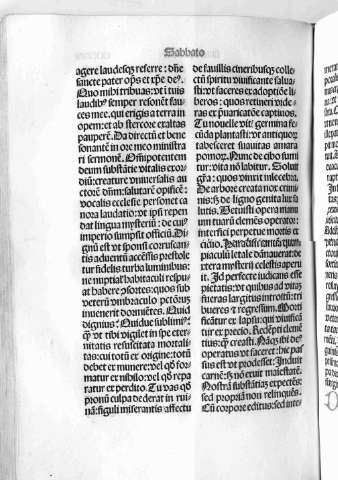 Sabbato
agere laudesq; referre: dñe
sancte pater op̄s et xp̄e de⁹.
Quo mihi tribuas: vt i tuis
laudib⁹ semper resonēt fau
ces mee. qui erigis a terra in
opem: et ab stercore exaltas
pauperē. Da directū et bene
sonantē in ore meo ministra
ri sermonē. Omīpotentem
deum substātie vitalis exor
diū: creature vniuersalis au
ctorē dn̄m: salutarē opificē:
vocalis ecclesie personet ca
nora laudatio: vt ip̄si repen
dat lingua mysteriū: de cui⁹
imperio sumpsit officiū. Di
gnū est vt sponsi coruscan
tis aduentū accēsis prestole
tur fidelis turba luminibus:
ne nuptial' habitaculi respu
at habere psortes: quos sub
veterū vmbraculo pctōrum
inuenerit dormiētes. Quid
dignius? Quidue sublimi⁹:
q̄ vt tibi vigilet in spe eter
nitatis resuscitata mortali
tas: cui totū ex origine: totū
debet ex munere: vel qd for
matur ex nihilo: vel qd repa
ratur ex perdito. Tu vas qd
pronū culpa dederat in rui
nā: figuli miserantis affectu
de fauillis cineribusq; collec
tū spiritu viuificante saluа
sti: vt faceres ex adoptiōe li
beros: quos retineri vide
ras ex p̄uaricatiōe captiuos.
Tu nouelle viti⁹ germina fe
cūda plantasti: vt antiquor̄
tabesceret suauitas amara
pomor̄. Nunc de cibo sumi
tur vita nō labitur. Soluit
gr̄a: quos vinxit illecebra.
De arbore creata nox crimi
nis: s; de ligno genita lux sa
lutis. Detulisti opera manu
um tuarū clemēs operator:
interfici perpetue mortis ex
itio. Paradisi
piaculū letale dānauerat: de
xtera mysterij celestis aperu
it. Id perfecte iudicans esse
pietatis: vt quibus ad vitaz
fueras largitus introitū: tri
bueres et regressum. Morti
ficātur ex lapsu: qui viuificā
tur ex precio. Redēpti clemē
tius: q̄ creasti. Nāq; ibi de⁹
operatus vt faceret: hic pas
sus est vt prodesset: Induit
carnē: s; nō exuit maiestatē.
Nostrā substātiaz expetēs:
sed propriā non relinquēs.
Cū corpore editus: sed inte